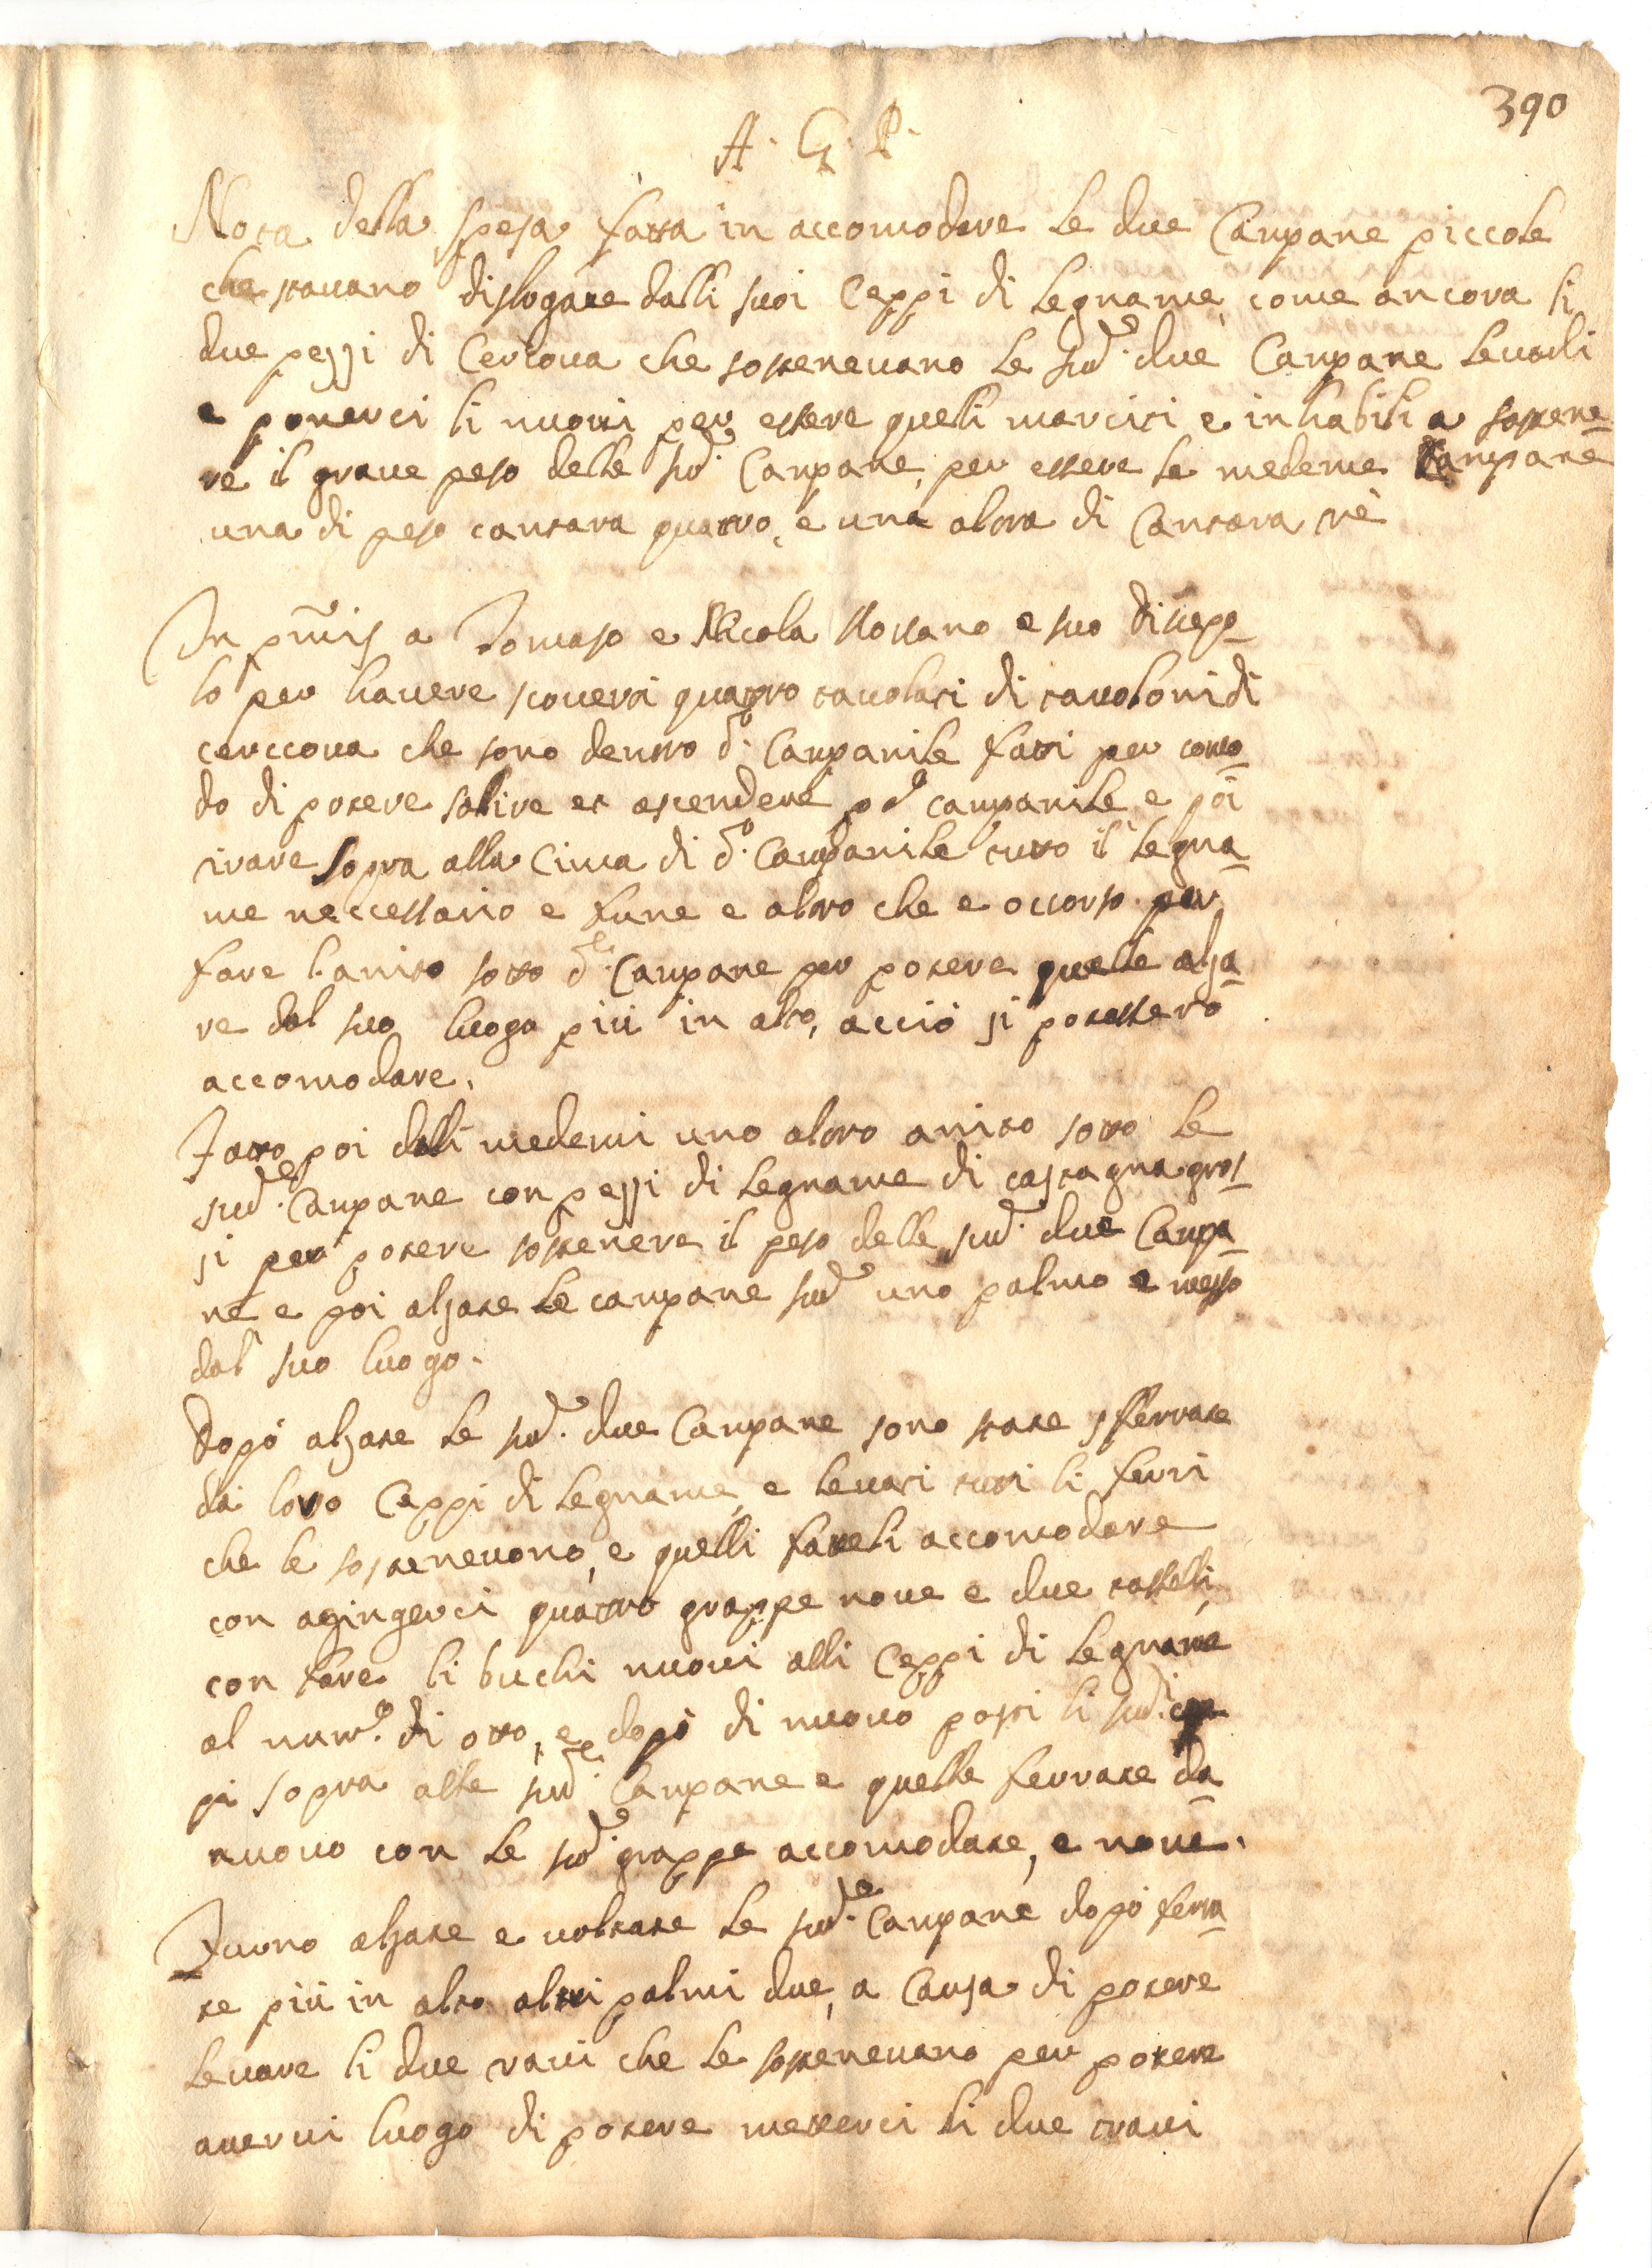 390
A. G. P.
Nota della spesa fatta in accomodare le due Campane piccole
che stavano dislogate dalli suoi Ceppi di legname, come ancora li
due pezzi di Cercova che sostenevano le sud.e due Campane levarli
e ponerci li nuovi per essere queli marciti e inhabili a sostene-
re il grave peso delle sud.e Campane, per essere le medeme Campane
una di peso cantara quattro, e una altra di Cantara trè
In p̃mis a Tomaso e Nicola Rossano e suo discepo-
lo per havere scoverti quattro tavolati di tavoloni di
cerccova che sono dentro d.o Campanile fatti per como-
do di potere salire et ascendere p d.o campanile e poi
tirare sopra alla Cima di d.o Campanile tutto il legna-
me neccessario e fune e altro che e occorso per
fare l'anito sotto d.e Campane per potere quelle alza-
re dal suo luogo più in alto, acciò si potessero
accomodare.
Fatto poi dalli medemi uno altro anito sotto le
sud.e Campane con pezzi di legname di castagna gros-
si per potere sostenere il peso delle sud.e due Campa-
ne e poi alzate le campane sud.e uno palmo e mezzo
dal suo luogo.
Dopò alzate le sud.e due Campane sono state sferrate
da loro Ceppi di legname, e levati tutti li ferri
che le sostenevono, e quelli fateli accomodare
con agingerci quattro grappe nove e due tasselli,
con fare li buchi nuovi alli Ceppi di legname
al num.o di otto, e dopò di nuovo posti li sud.i cep-
pi sopra alle sud.e Campane e quelle ferrate da
nuovo con le sud.e grappe accomodate, e nove.
Furno alzate e voltate le sud.e Campane dopò ferra-
te più in alto altri palmi due, a Causa di potere
levare li due travi che le sostenevano per potere
avervi luogo di potere metterci li due travi